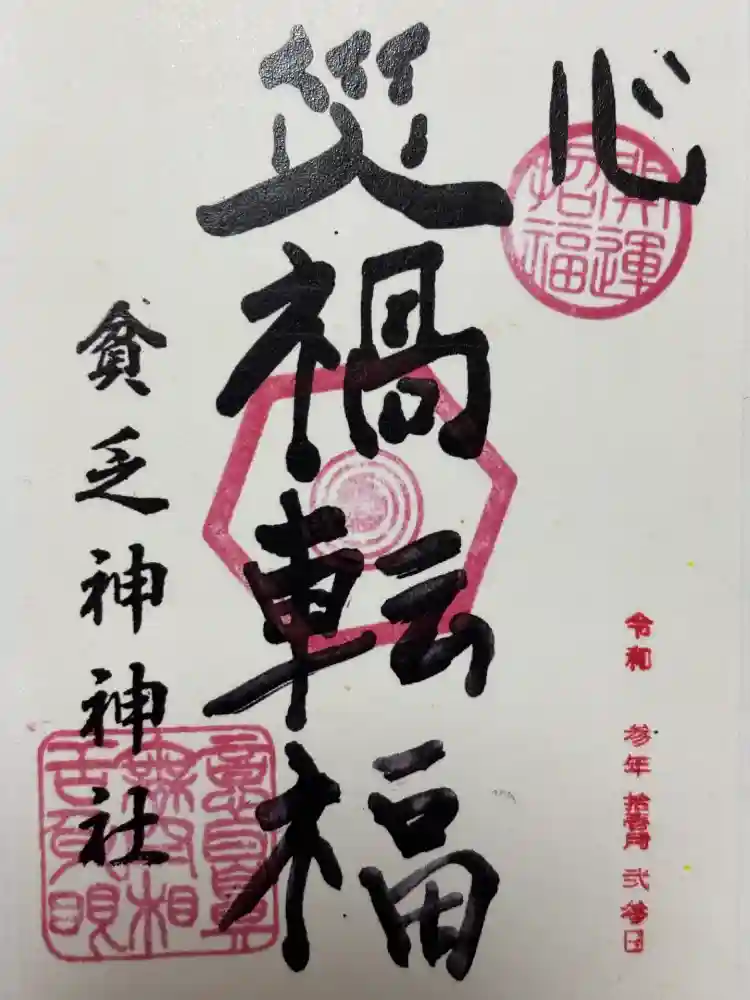 心
開運
招福
令和 参年 拾壱月 弐参日
災禍転福
貧乏神神社